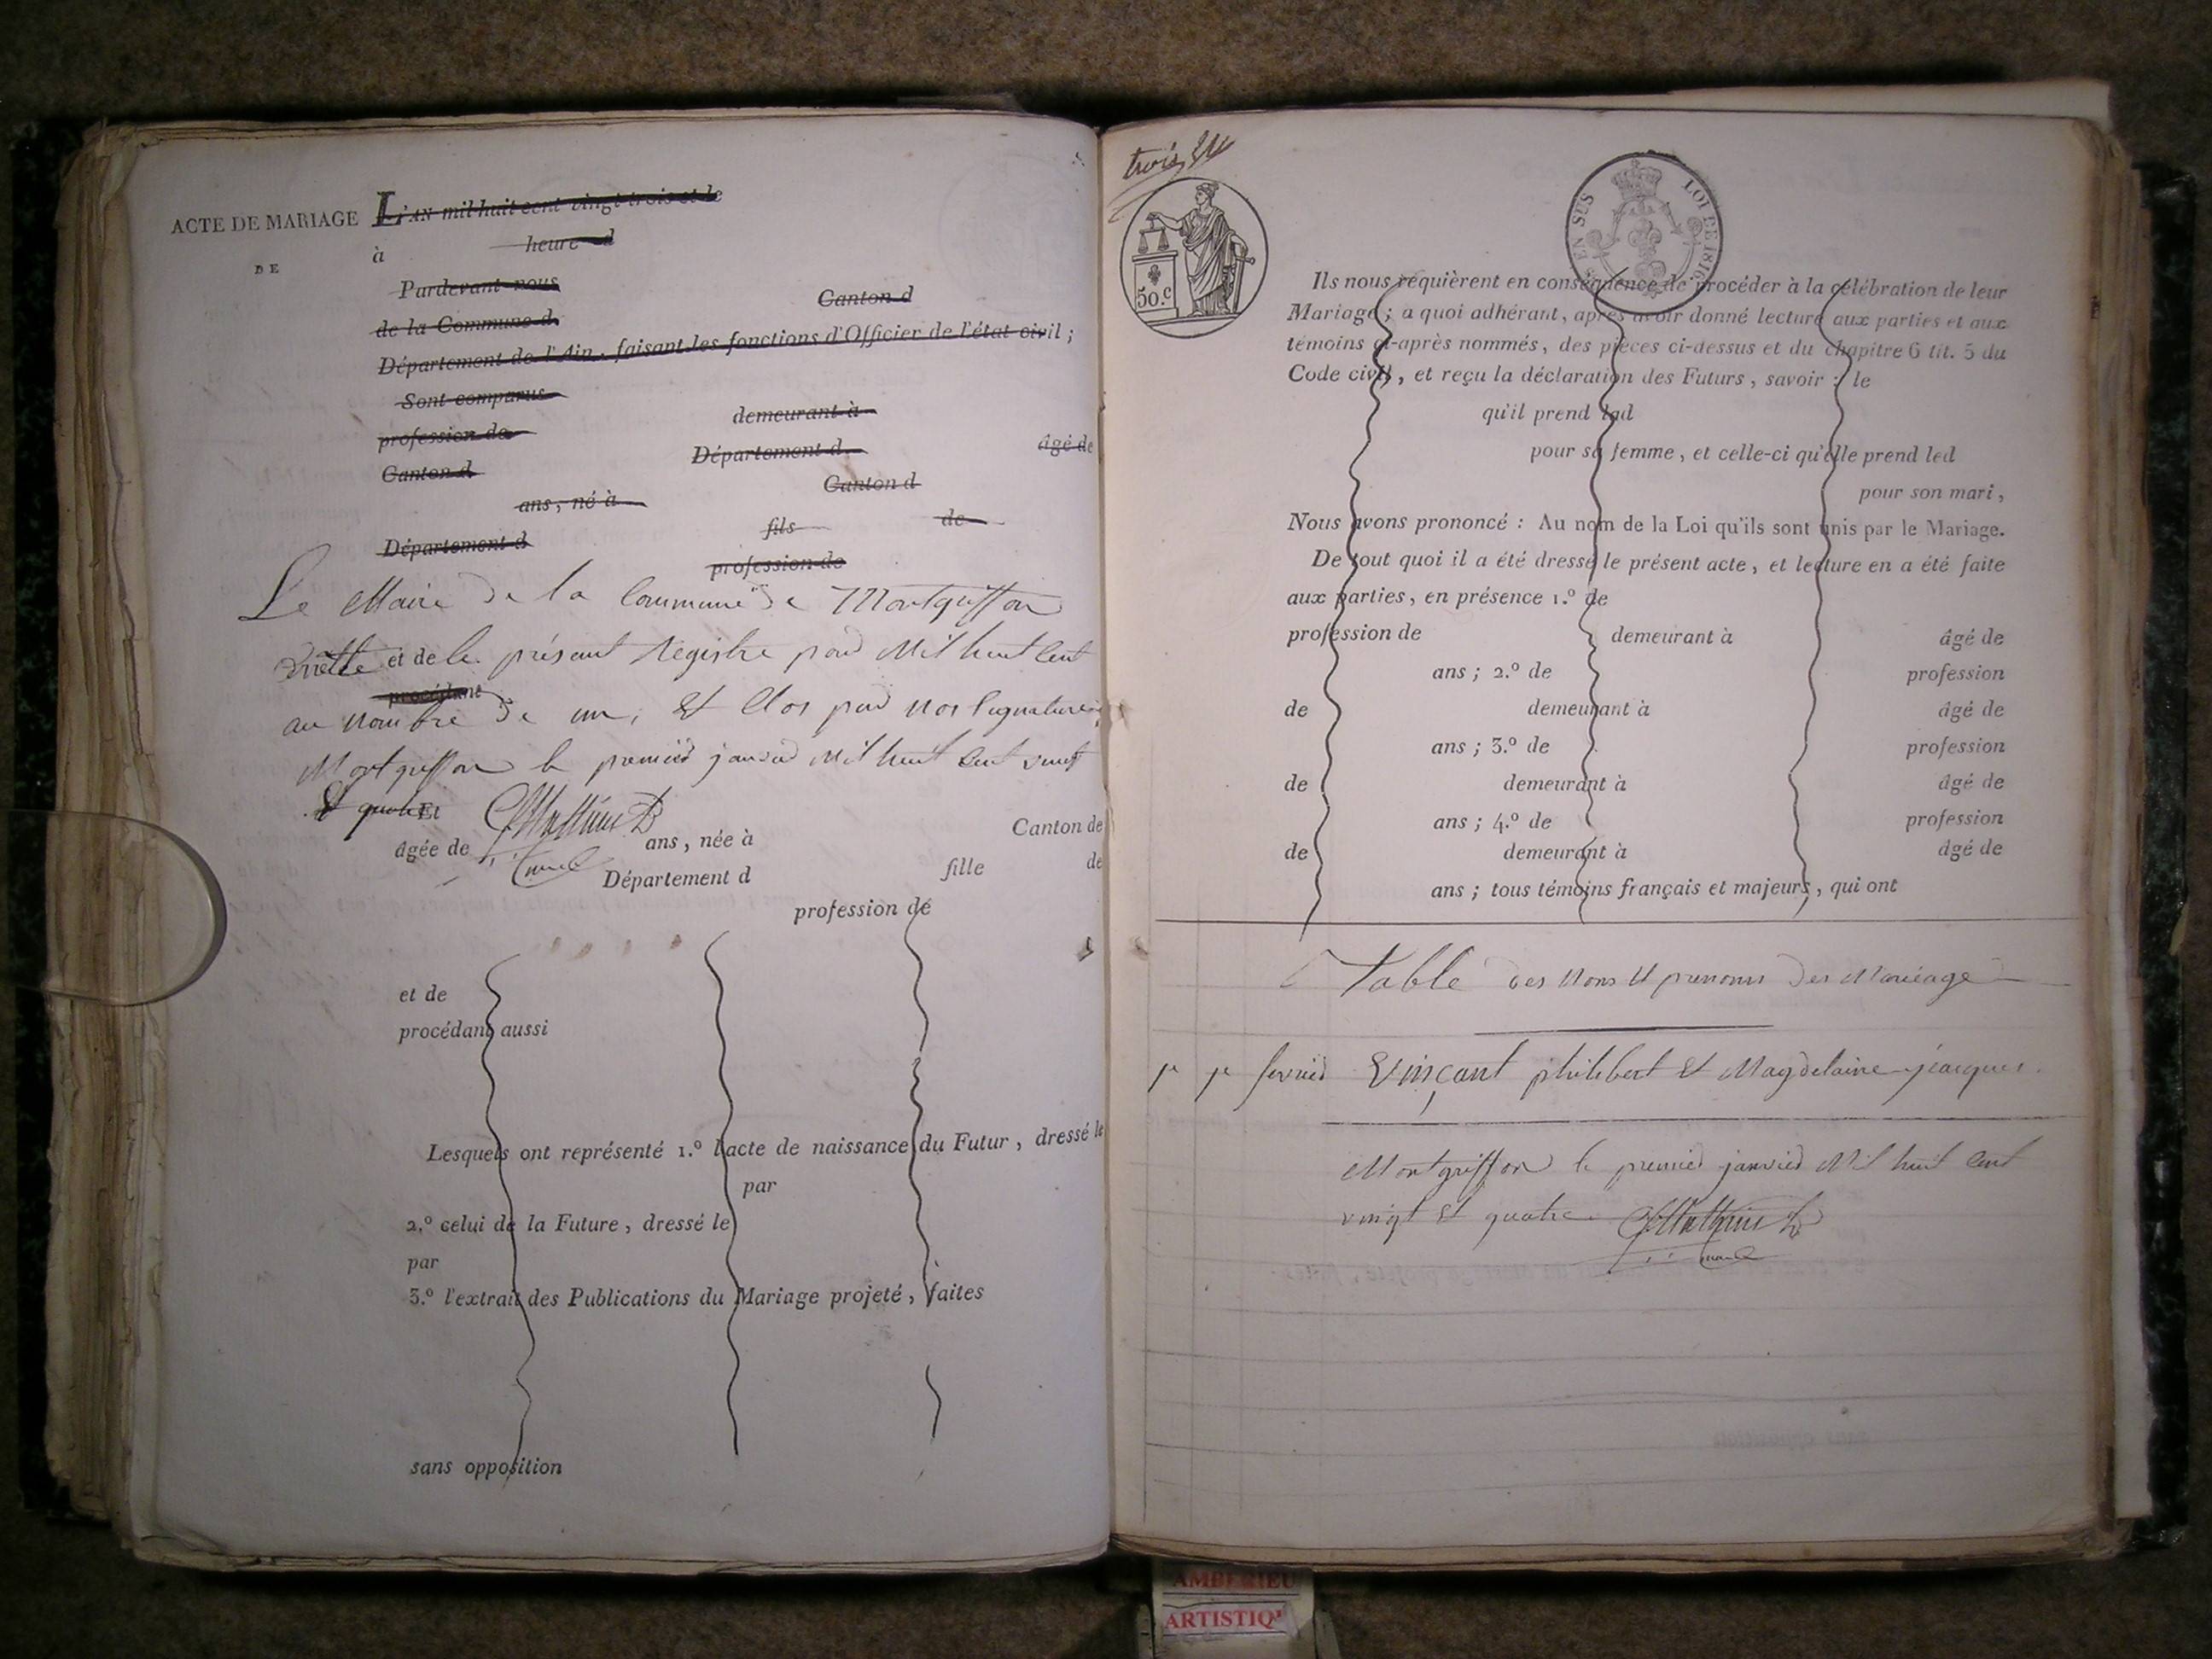 ACTE DE MARIAGE L'AN mil huit cent vingt-trois et le
DE à heure d
Pardevant nous
de la Commune d Canton d
Département de l'Ain, faisant les fonctions d'Officier de l'état civil ;
Sont comparus
profession de demeurant à
Canton d Département d âgé de
ans, né à Canton d
Département d fils de
profession de
Le Maire de la Commune de Montgriffon
et de le présent Registre pour Mil huit Cent
procédant
au nombre de un, Et Clos par nos Signatures
Montgriffon le premier janvier Mil huit Cent vingt
Et quatre Et
âgée de ans, née à Canton de
Département d fille de
profession de
et de
procédant aussi
Lesquels ont représenté 1.º l'acte de naissance du Futur, dressé le
par
2.º celui de la Future, dressé le
par
3.º l'extrait des Publications du Mariage projeté, faites
sans opposition
trois
50.c
EN SUS LOI DE 1816
Ils nous requièrent en conséquence de procéder à la célébration de leur
Mariage ; a quoi adhérant, après avoir donné lecture aux parties et aux
témoins ci-après nommés, des pièces ci-dessus et du chapitre 6 tit. 5 du
Code civil, et reçu la déclaration des Futurs, savoir : le
qu'il prend lad
pour sa femme, et celle-ci qu'elle prend led
pour son mari,
Nous avons prononcé : Au nom de la Loi qu'ils sont unis par le Mariage.
De tout quoi il a été dressé le présent acte, et lecture en a été faite
aux parties, en présence 1.º de
profession de demeurant à âgé de
ans ; 2.º de profession
de demeurant à âgé de
ans ; 3.º de profession
de demeurant à âgé de
ans ; 4.º de profession
de demeurant à âgé de
ans ; tous témoins français et majeurs, qui ont
Table des Noms Et prenoms des Mariage
fevrier Vinçant philibert Et Magdelaine jeacques.
Montgriffon le premier janvier Mil huit Cent
vingt Et quatre.
AMBERIEU
ARTISTIQ